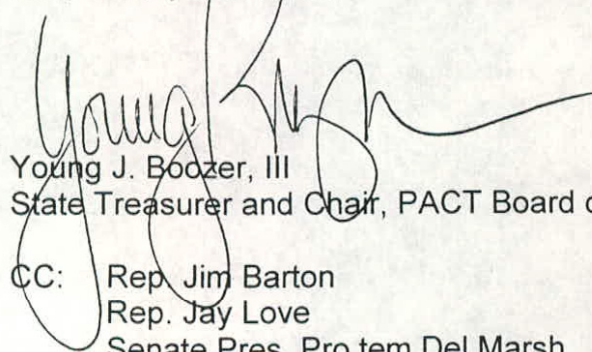 Young J. Boozer, III
State Treasurer and Chair, PACT Board
CC: Rep. Jim Barton
Rep. Jay Love
Senate Pres. Pro tem Del Marsh